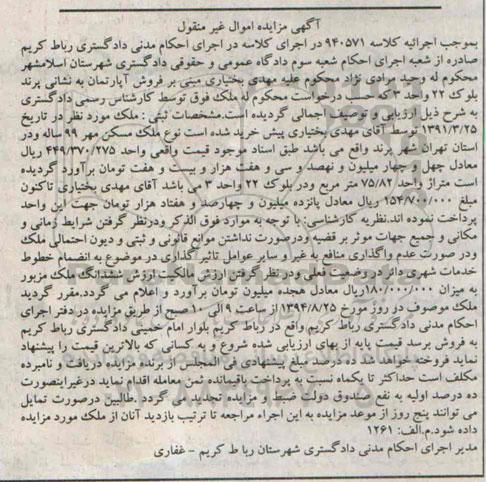 آگهی مزایده اموال غیر منقول
بموجب اجرائیه کلاسه ۹۴۰۵۷۱ در اجرای کلاسه در اجرای احکام مدنی دادگستری رباط کریم
صادره از شعبه اجرای احکام شعبه سوم دادگاه عمومی و حقوقی دادگستری شهرستان اسلامشهر
محکوم له وحید مرادی نژاد محکوم علیه مهدی بختیاری مبنی بر فروش آپارتمان به نشانی پرند
بلوک ۲۲ واحد ۳ که حسب درخواست محکوم له ملک فوق توسط کارشناس رسمی دادگستری
به شرح ذیل ارزیابی و توصیف اجمالی گردیده است.مشخصات ثبتی : ملک مورد نظر در تاریخ
۱۳۹۱/۳/۲۵ توسط آقای مهدی بختیاری پیش خرید شده است نوع ملک مسکن مهر ۹۹ ساله ودر
استان تهران شهر پرند واقع می باشد طبق اسناد موجود قیمت واقعی واحد ۴۴۹/۳۷۰/۲۷۵ ریال
معادل چهل و چهار میلیون و نهصد و سی و هفت هزار و بیست و هفت تومان برآورد گردیده
است متراژ واحد ۷۵/۸۲ متر مربع ودر بلوک ۲۲ واحد ۳ می باشد آقای مهدی بختیاری تاکنون
مبلغ ۱۵۴/۷۰۰/۰۰۰ ریال معادل پانزده میلیون و چهارصد و هفتاد هزار تومان جهت این واحد
پرداخت نموده اند.نظریه کارشناسی: با توجه به موارد فوق الذکر ودرنظر گرفتن شرایط زمانی و
مکانی و جمیع جهات موثر بر قضیه ودرصورت نداشتن موانع قانونی و ثبتی و دیون احتمالی ملک
ودر صورت عدم واگذاری منافع به غیر و سایر عوامل تاثیر گذاری در موضوع به انضمام خطوط
خدمات شهری دائر و وضعیت فعلی ودر نظر گرفتن ارزش مالکیت ارزش ششدانگ ملک مزبور
به میزان ۱۸۰/۰۰۰/۰۰۰ریال معادل هجده میلیون تومان برآورد و اعلام می گردد.مقرر گردید
ملک موصوف در روز مورخ ۱۳۹۴/۸/۲۵ از ساعت ۹ الی ۱۰ صبح از طریق مزایده در دفتر اجرای
احکام مدنی دادگستری رباط کریم واقع در رباط کریم بلوار امام خمینی دادگستری رباط کریم
به فروش برسد قیمت پایه از بهای ارزیابی شده شروع و به کسانی که بالاترین قیمت را پیشنهاد
نماید فروخته خواهد شد ده درصد مبلغ پیشنهادی فی المجلس از برنده مزایده دریافت و نامبرده
مکلف است حداکثر تا یکماه نسبت به پرداخت باقیمانده ثمن معامله اقدام نماید درغیراینصورت
ده درصد اولیه به نفع صندوق دولت ضبط و مزایده تجدید می گردد .طالبین درصورت تمایل
می توانند پنج روز از موعد مزایده به این اجراء مراجعه تا ترتیب بازدید آنان از ملک مورد مزایده
داده شود.م.الف: ۱۲۶۱
مدیر اجرای احکام مدنی دادگستری شهرستان رباط کریم - غفاری